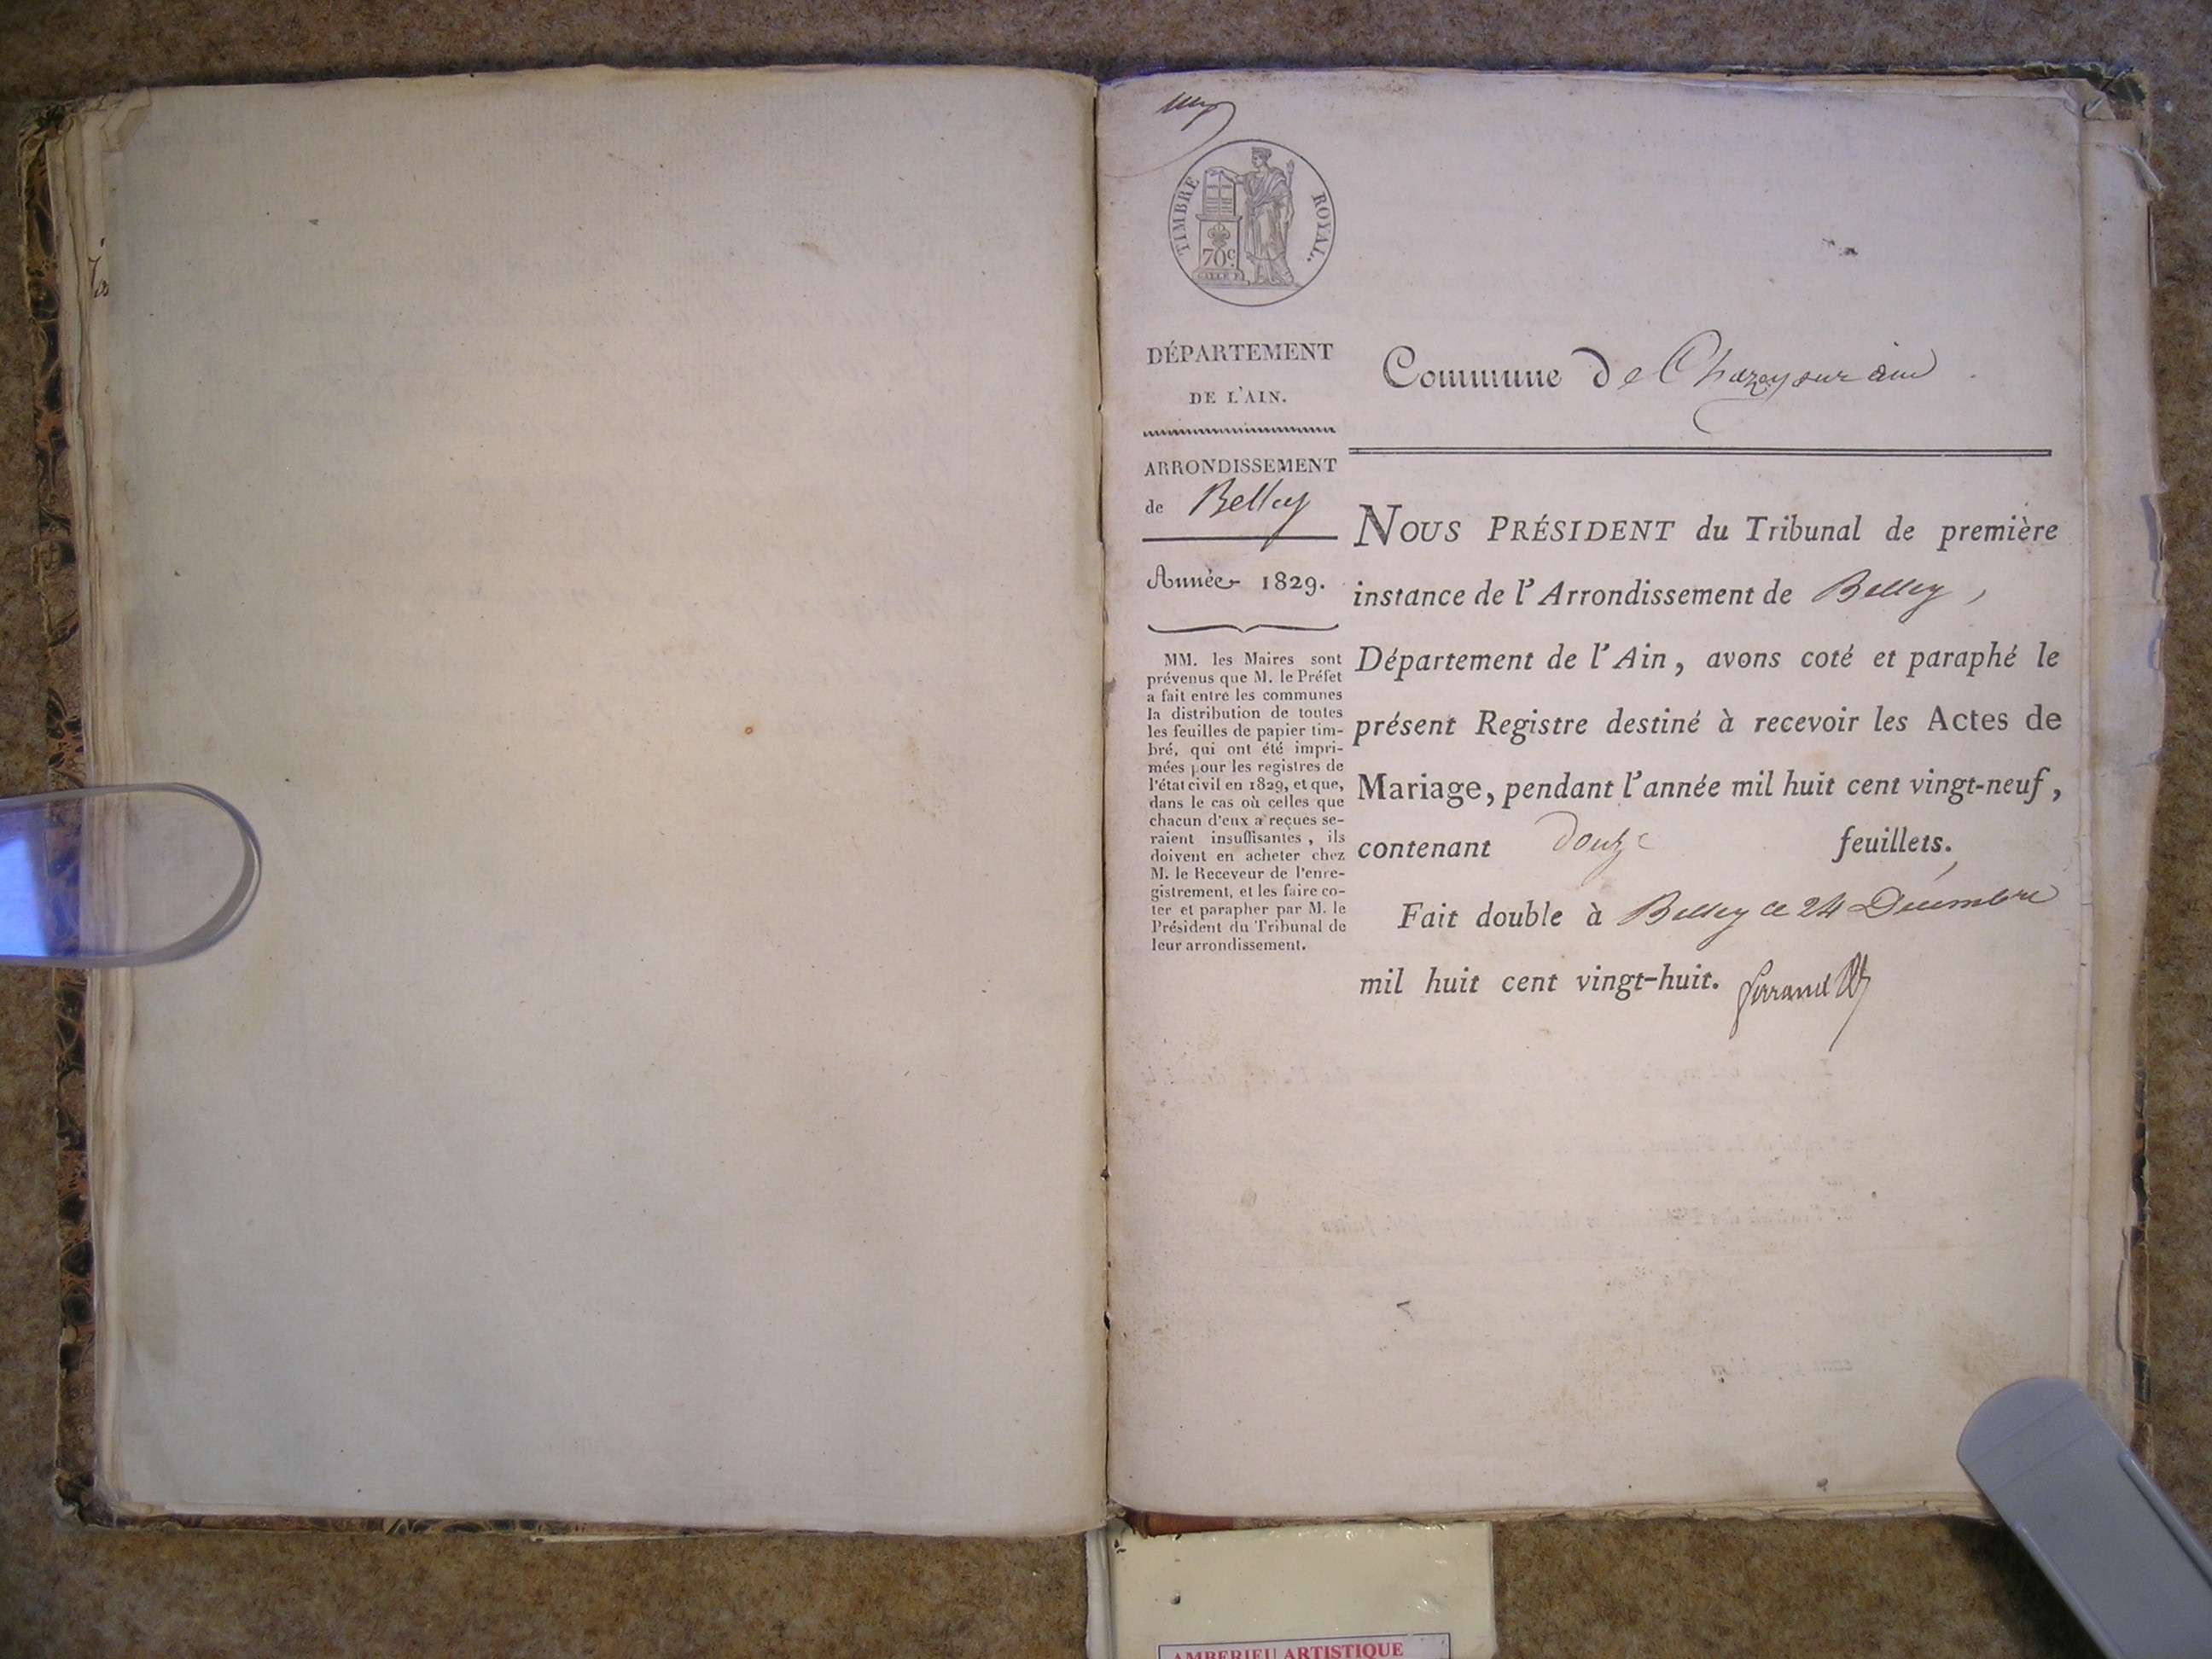 TIMBRE ROYAL.
70c.
DÉPARTEMENT
DE L'AIN.
ARRONDISSEMENT
de Belley
Année 1829.
MM. les Maires sont
prévenus que M. le Préfet
a fait entre les communes
la distribution de toutes
les feuilles de papier tim-
bré, qui ont été impri-
mées pour les registres de
l'état civil en 1829, et que,
dans le cas où celles que
chacun d'eux a reçues se-
raient insuffisantes, ils
doivent en acheter chez
M. le Receveur de l'enre-
gistrement, et les faire co-
ter et parapher par M. le
Président du Tribunal de
leur arrondissement.
Commune de Chazey sur ain
NOUS PRÉSIDENT du Tribunal de première
instance de l'Arrondissement de Belley,
Département de l'Ain, avons coté et paraphé le
présent Registre destiné à recevoir les Actes de
Mariage, pendant l'année mil huit cent vingt-neuf,
contenant douze feuillets.
Fait double à Belley ce 24 Décembre
mil huit cent vingt-huit.
AMBERIEU ARTISTIQUE